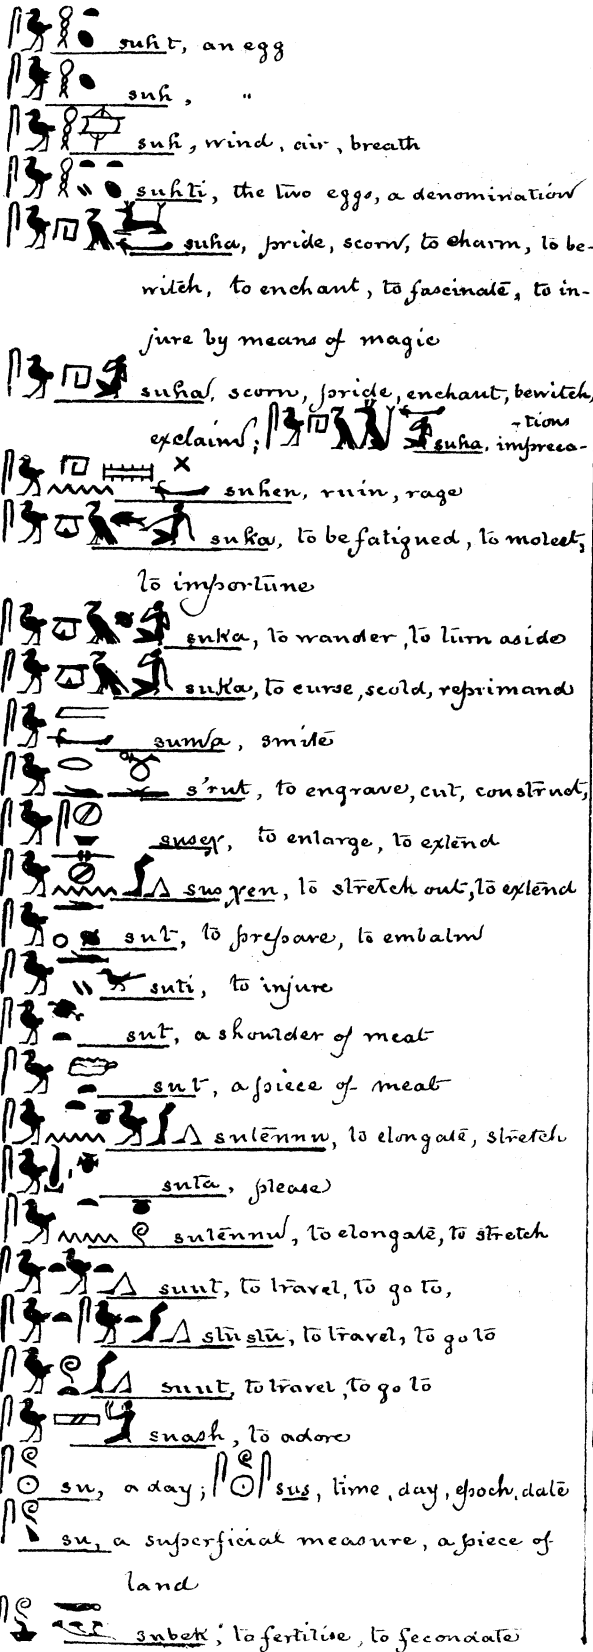 suht, an egg
suh, "
suh, wind, air, breath
suhti, the two eggs, a denomination
suha, pride, scorn, to charm, to be-
witch, to enchant, to fascinate, to in-
jure by means of magic
suha, scorn, pride, enchant, bewitch,
exclaim; suha, impreca-
-tions
suhen, ruin, rage
suka, to be fatigued, to molest,
to importune
suka, to wander, to turn aside
suka, to curse, scold, reprimand
suma, smite
s'rut, to engrave, cut, construct,
suseχ, to enlarge, to extend
susχen, to stretch out, to extend
sut, to prepare, to embalm
suti, to injure
sut, a shoulder of meat
sut, a piece of meat
sutennu, to elongate, stretch
suta, please
sutennu, to elongate, to stretch
suut, to travel, to go to,
stu stu, to travel, to go to
suut, to travel, to go to
suash, to adore
su, a day; sus, time, day, epoch, date
su, a superficial measure, a piece of
land
subek; to fertilise, to fecondate